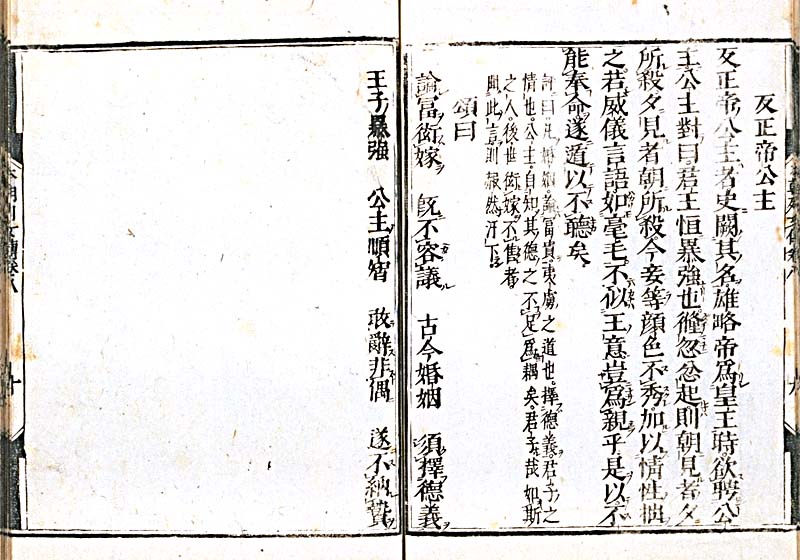 反正帝公主
反正帝公主者史闕其名雄略帝爲皇王時欲聘公
主公主對曰君王恒暴強也倏忽忿起則朝見者夕
所殺夕見者朝所殺今妾等顔色不秀加以情性拙
之若威儀言語如毫毛不似王意豈爲親乎是以不
能奉命遂遁以不聽矣
評曰凡婚姻論富貴夷虜之道也擇德義君子之
情也公主自知其德之不足爲耦矣君子哉如斯
之人後世衒嫁不售者
與此言則赧然汗下
頌曰
論冨衒嫁 旣不容議 古今婚姻 須擇德義
王子暴強 公主順婿 敢辭非偶 遂不納贄